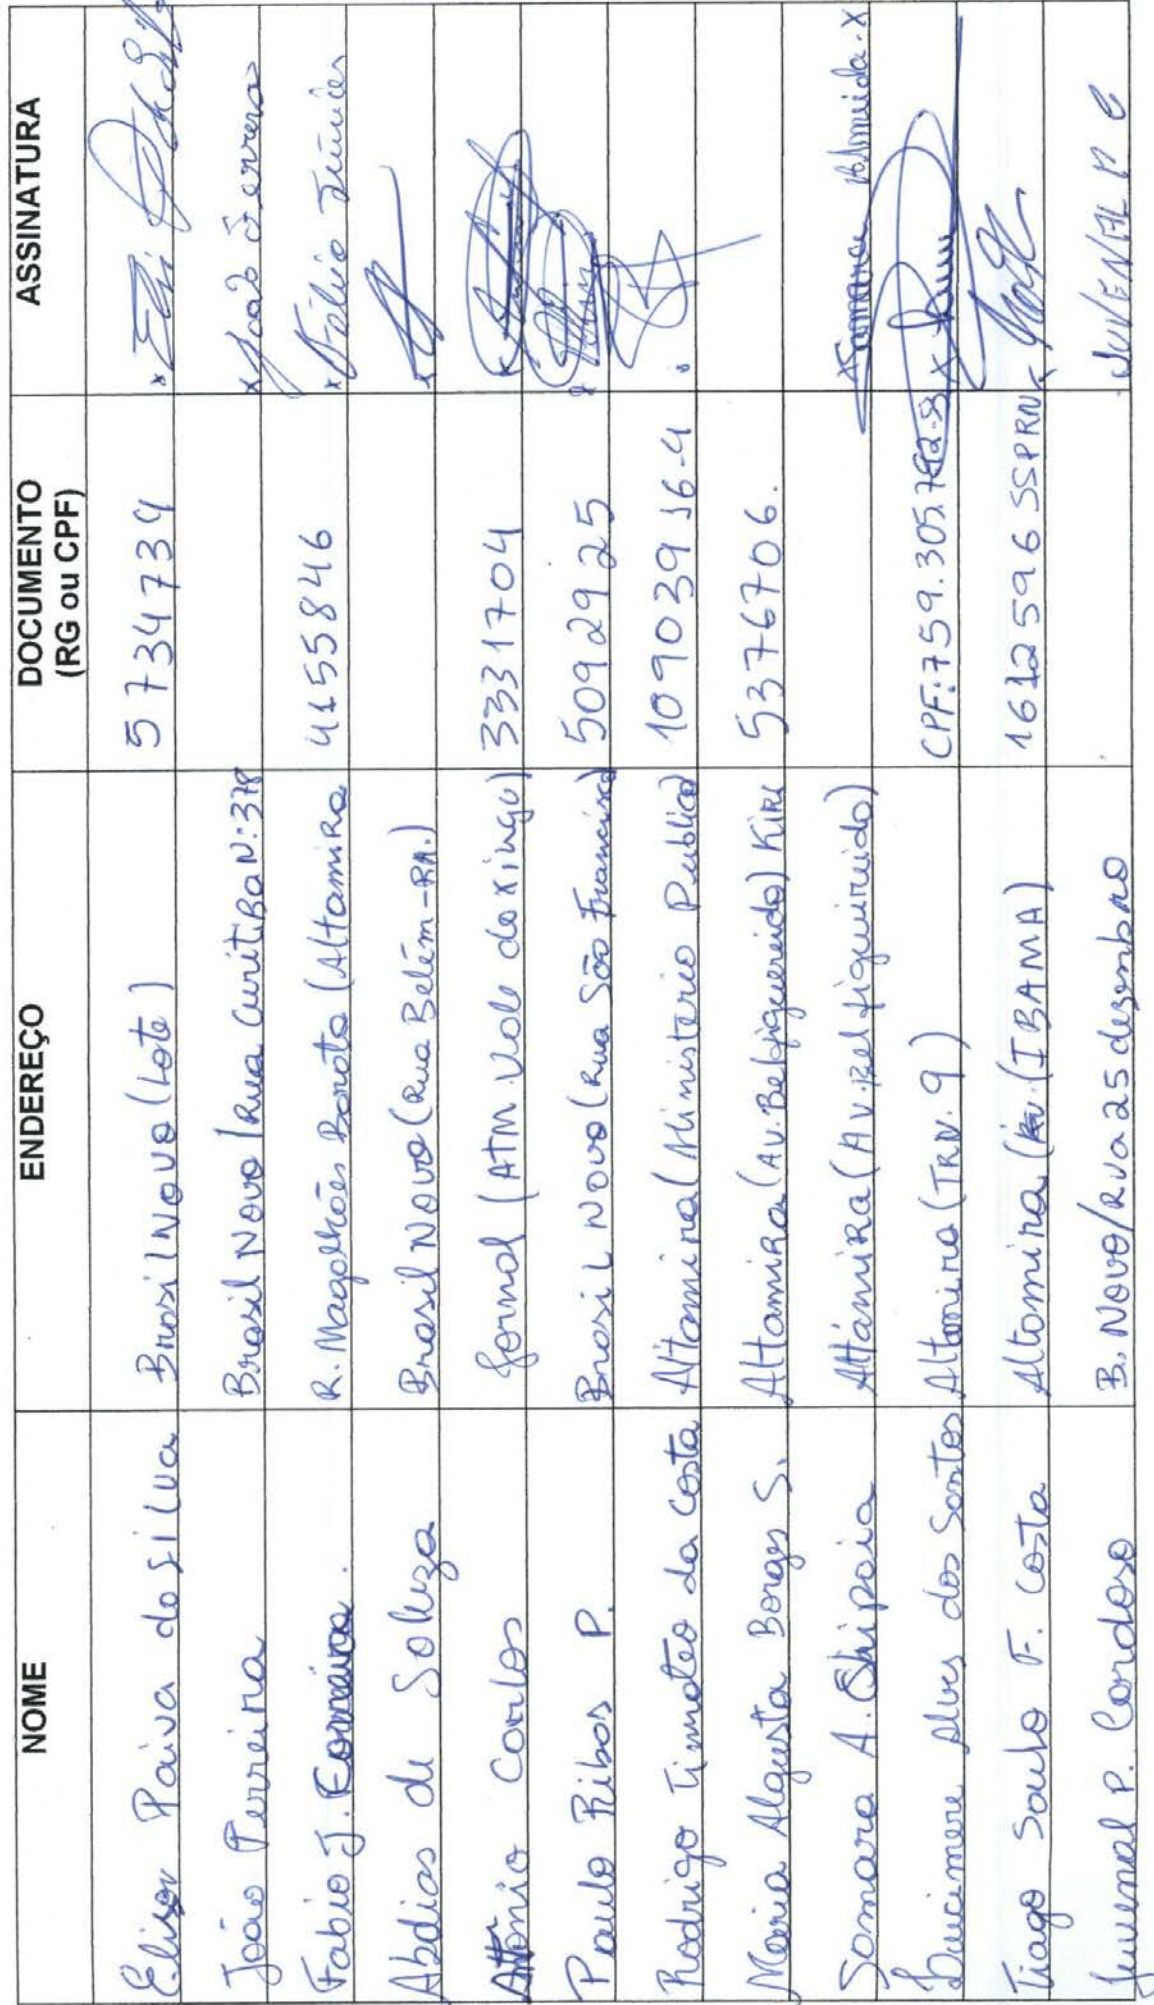 NOME ENDEREÇO DOCUMENTO (RG ou CPF) ASSINATURA
Elison Paiva da Silva Brasil Novo (Lote) 5734734 x Eli
João Ferreira Brasil Novo (Rua Curitiba N:378 x João Ferreira
Fabio J. R. Magalhães Barata (Altamira 4155846 x Fábio
Abdias de Souza Brasil Novo (Rua Belém-RA.) x
Antônio Carlos Jornal (ATM. Vale do Xingu) 3331704 x
Paulo Ribas P. Brasil Novo (Rua São Francisco) 5092925
Rodrigo Timoteo da Costa Altamira (Ministerio Publico) 10903916-4
Maria Algusta Borges S. Altamira (AV. Bel figueiredo) Kiki 5376706.
Somara A. Shipaia Altamira (AV. Bel figuiruido) Almeida.x
Alves dos Santos Altamira (TRN. 9) CPF:759.305.792- x
Tiago Saulo F. Costa Altamira (IBAMA) 16125996 SSPRN
Juvenal P. Cardoso B. Novo/Rua 25 dezembro JUVENAL P C